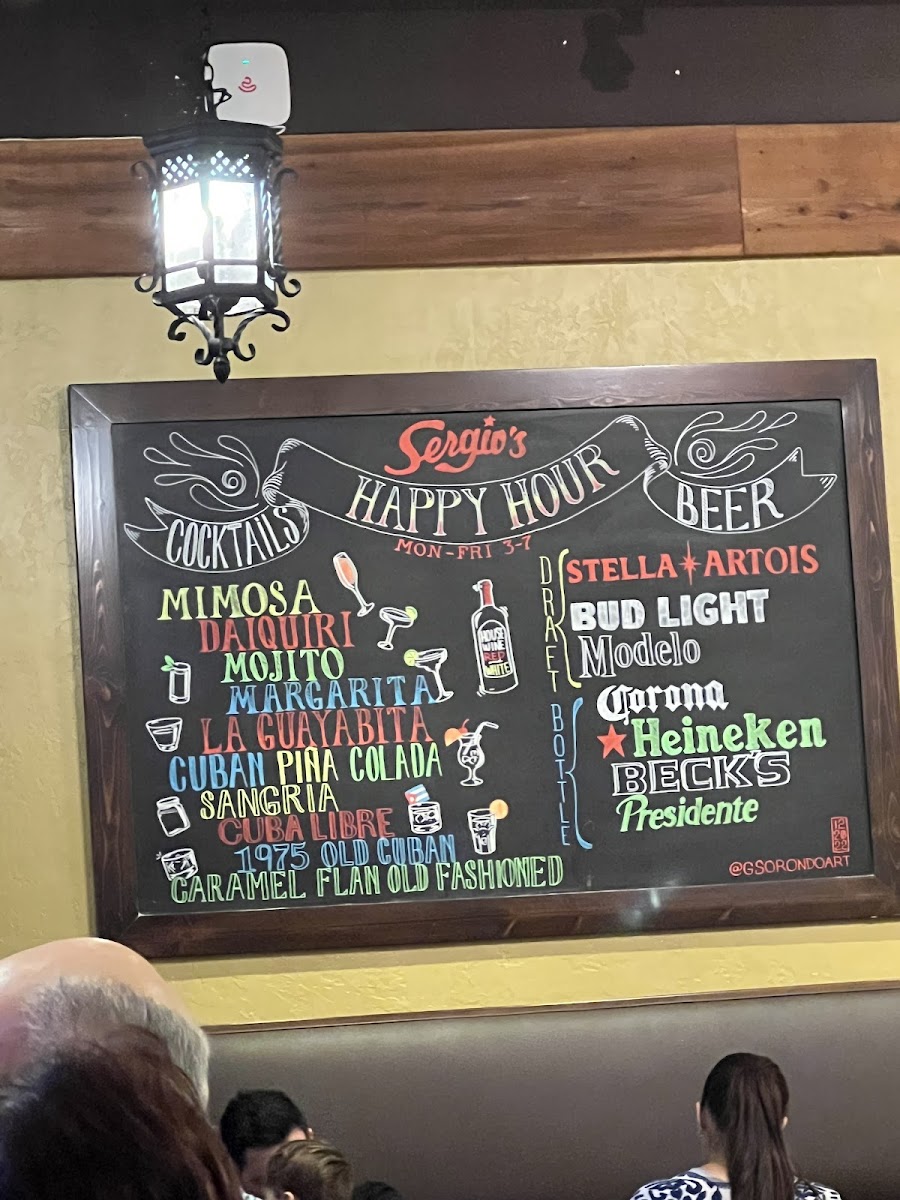 Sergio's
HAPPY HOUR
MON-FRI 3-7
COCKTAILS
MIMOSA
DAIQUIRI
MOJITO
MARGARITA
LA GUAYABITA
CUBAN PIÑA COLADA
SANGRIA
CUBA LIBRE
1975 OLD CUBAN
CARAMEL FLAN OLD FASHIONED
HOUSE
WINE
RED
WHITE
BEER
DRAFT
STELLA ARTOIS
BUD LIGHT
Modelo
BOTTLE
Corona
Heineken
BECK'S
Presidente
12
20
22
@GSORONDOART